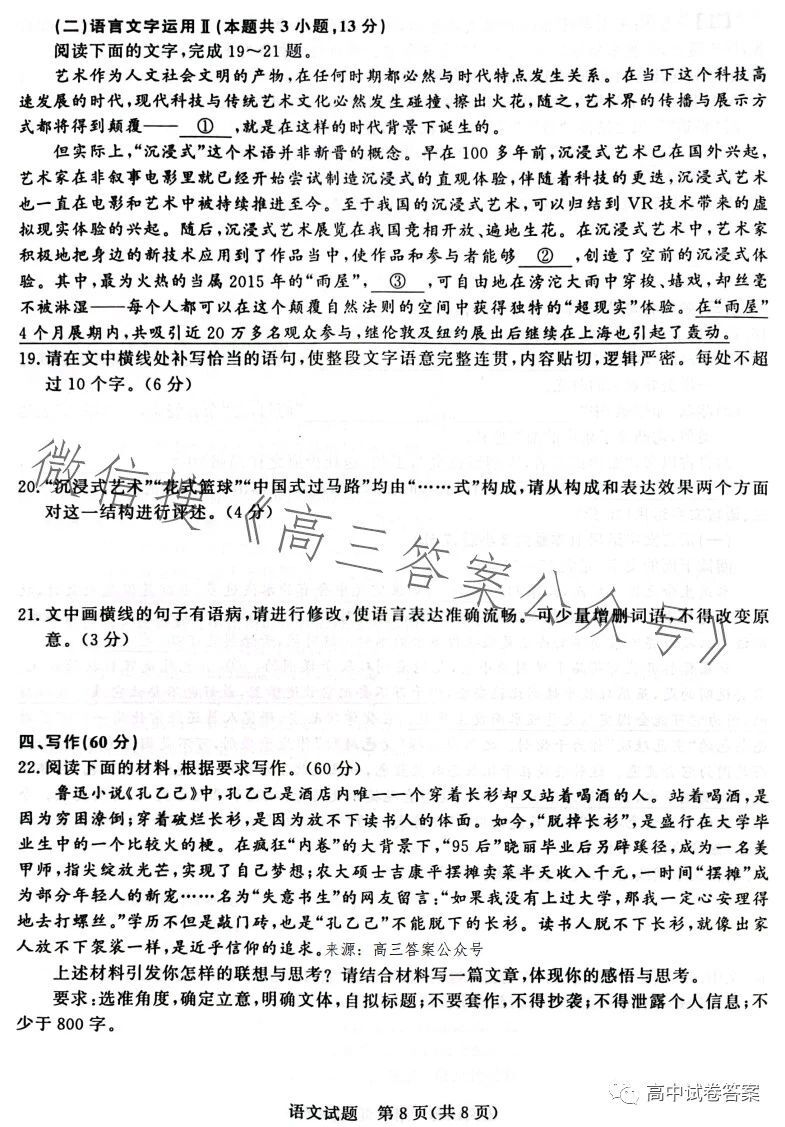 (二)语言文字运用Ⅱ(本题共3小题,13分)
阅读下面的文字,完成19～21题。
艺术作为人文社会文明的产物,在任何时期都必然与时代特点发生关系。在当下这个科技高
速发展的时代,现代科技与传统艺术文化必然发生碰撞、擦出火花,随之,艺术界的传播与展示方
式都将得到颠覆—— ① ,就是在这样的时代背景下诞生的。
但实际上,“沉浸式”这个术语并非新晋的概念。早在100多年前,沉浸式艺术已在国外兴起,
艺术家在非叙事电影里就已经开始尝试制造沉浸式的直观体验,伴随着科技的更迭,沉浸式艺术
也一直在电影和艺术中被持续推进至今。至于我国的沉浸式艺术,可以归结到VR技术带来的虚
拟现实体验的兴起。随后,沉浸式艺术展览在我国竞相开放、遍地生花。在沉浸式艺术中,艺术家
积极地把身边的新技术应用到了作品当中,使作品和参与者能够 ② ,创造了空前的沉浸式体
验。其中,最为火热的当属2015年的“雨屋”, ③ ,可自由地在滂沱大雨中穿梭、嬉戏,却丝毫
不被淋湿——每个人都可以在这个颠覆自然法则的空间中获得独特的“超现实”体验。在“雨屋”
4个月展期内,共吸引近20万多名观众参与,继伦敦及纽约展出后继续在上海也引起了轰动。
19.请在文中横线处补写恰当的语句,使整段文字语意完整连贯,内容贴切,逻辑严密。每处不超
过10个字。(6分)
20.“沉浸式艺术”“花式篮球”“中国式过马路”均由“……式”构成,请从构成和表达效果两个方面
对这一结构进行评述。(4分)
21.文中画横线的句子有语病,请进行修改,使语言表达准确流畅。可少量增删词语,不得改变原
意。(3分)
微信搜《高三答案公众号》
四、写作(60分)
22.阅读下面的材料,根据要求写作。(60分)
鲁迅小说《孔乙己》中,孔乙己是酒店内唯一一个穿着长衫却又站着喝酒的人。站着喝酒,是
因为穷困潦倒;穿着破烂长衫,是因为放不下读书人的体面。如今,“脱掉长衫”,是盛行在大学毕
业生中的一个比较火的梗。在疯狂“内卷”的大背景下,“95后”晓丽毕业后另辟蹊径,成为一名美
甲师,指尖绽放光芒,实现了自己梦想;农大硕士吉康平摆摊卖菜半天收入千元,一时间“摆摊”成
为部分年轻人的新宠……名为“失意书生”的网友留言:“如果我没有上过大学,那我一定心安理得
地去打螺丝。”学历不但是敲门砖,也是“孔乙己”不能脱下的长衫。读书人脱不下长衫,就像出家
人放不下袈裟一样,是近乎信仰的追求。来源：高三答案公众号
上述材料引发你怎样的联想与思考？请结合材料写一篇文章,体现你的感悟与思考。
要求:选准角度,确定立意,明确文体,自拟标题;不要套作,不得抄袭;不得泄露个人信息;不
少于800字。
高中试卷答案
语文试题 第8页(共8页)